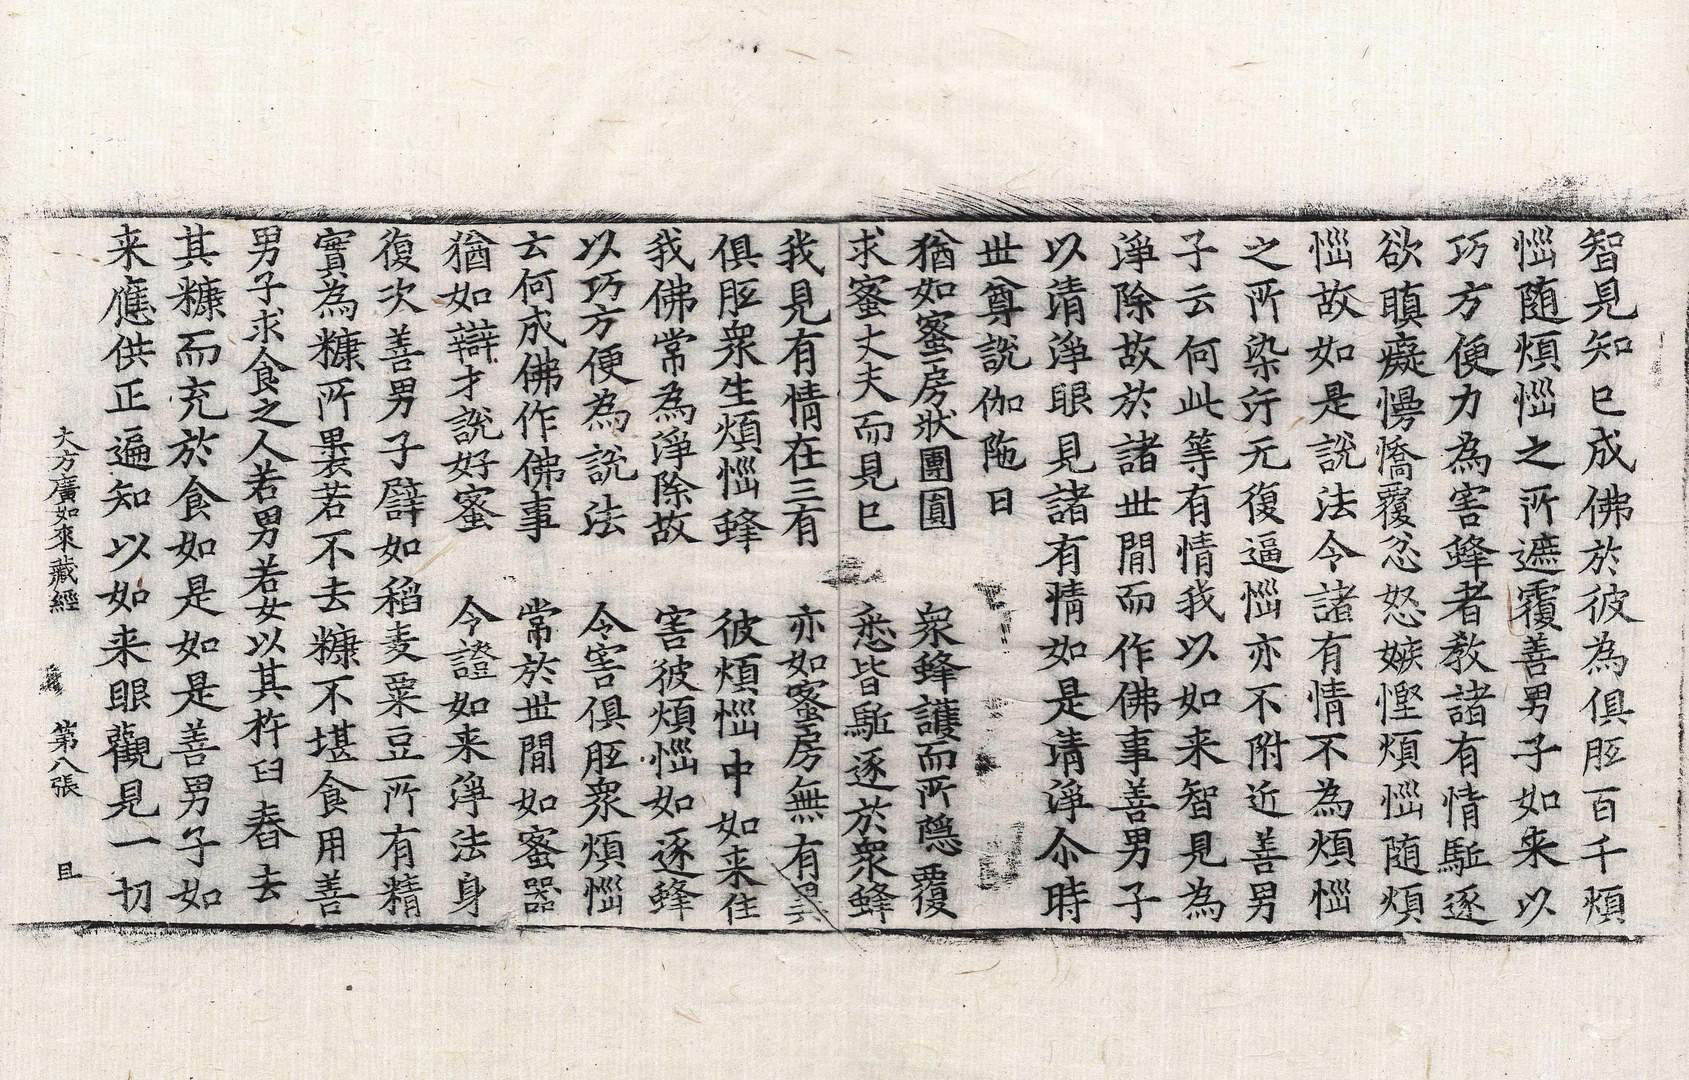 智見知已成佛於彼為俱胝百千煩
惱随煩惱之所遮覆善男子如来以
巧方便力為害蜂者教諸有情駈逐
欲瞋癡慢憍覆忿怒嫉慳煩惱随煩
惱故如是說法令諸有情不為煩惱
之所染汙无復逼惱亦不附近善男
子云何此等有情我以如来智見為
淨除故於諸世間而作佛事善男子
以清淨眼見諸有情如是清淨尒時
世尊說伽陁曰
猶如蜜房狀團圓　衆蜂護而所隱覆
求蜜丈夫而見已　悉皆駈逐於衆蜂
我見有情在三有　亦如蜜房無有異
俱胝衆生煩惱蜂　彼煩惱中如来住
我佛常為淨除故　害彼煩惱如逐蜂
以巧方便為說法　令害俱胝衆煩惱
云何成佛作佛事　常於世間如蜜器
猶如辯才說好蜜　令證如来淨法身
復次善男子譬如稻麦粟豆所有精
實為糠所褁若不去糠不堪食用善
男子求食之人若男若女以其杵臼舂去
其糠而充於食如是如是善男子如
来應供正遍知以如来眼觀見一切
大方廣如來藏經　第八張　且